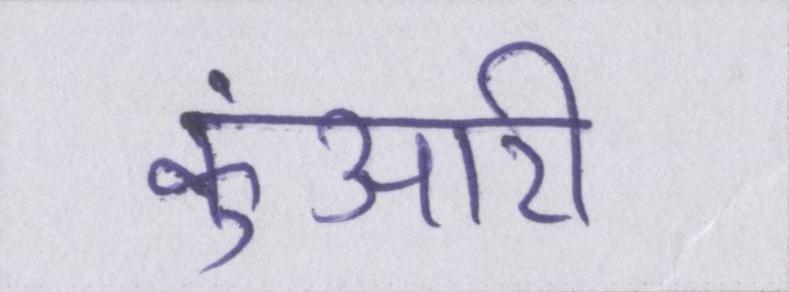 कुंआरी